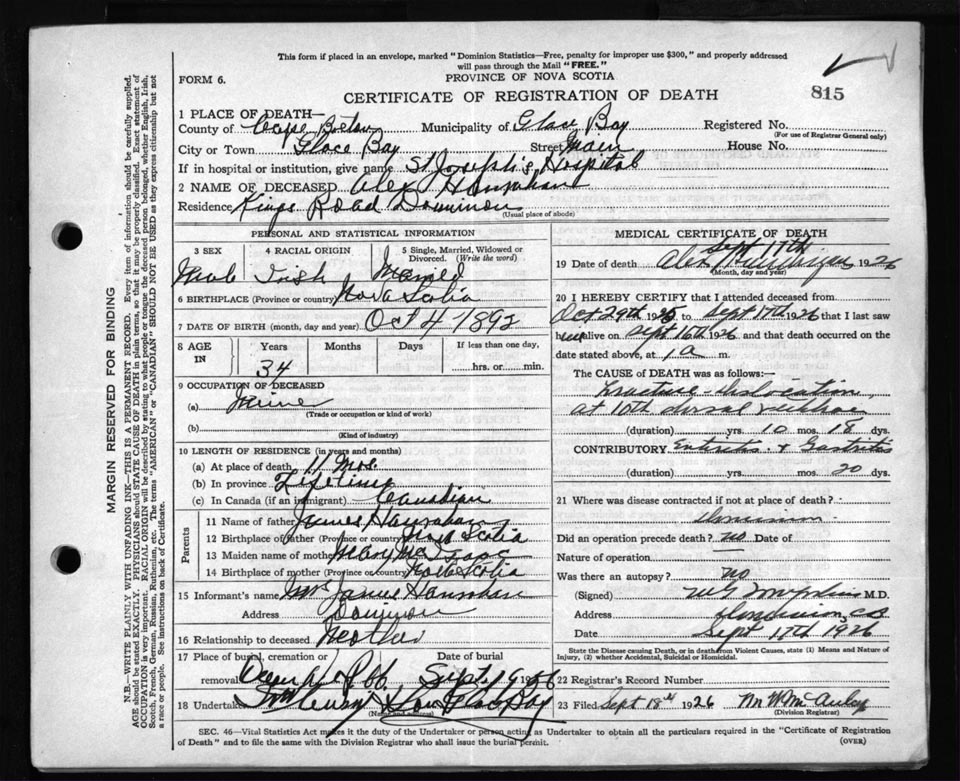 This form if placed in an envelope, marked "Dominion Statistics—Free, penalty for improper use $300," and properly addressed
will pass through the Mail "FREE."
FORM 6.
PROVINCE OF NOVA SCOTIA
815
CERTIFICATE OF REGISTRATION OF DEATH
1 PLACE OF DEATH—
County of Cape Breton Municipality of Glace Bay Registered No.
(For use of Registrar General only)
City or Town Glace Bay Street Main House No.
If in hospital or institution, give name St Joseph's Hospital
2 NAME OF DECEASED Alex Hanrahan
Residence Kings Road Dominion
(Usual place of abode)
PERSONAL AND STATISTICAL INFORMATION
3 SEX 4 RACIAL ORIGIN 5 Single, Married, Widowed or Divorced. (Write the word)
Male Irish Married
6 BIRTHPLACE (Province or country) Nova Scotia
7 DATE OF BIRTH (month, day and year) Oct 4 1892
8 AGE IN Years Months Days If less than one day,
34 hrs. or min.
9 OCCUPATION OF DECEASED
(a)
(Trade or occupation or kind of work)
(b)
(Kind of industry)
10 LENGTH OF RESIDENCE (in years and months)
(a) At place of death 11 Mos.
(b) In province Lifetime
(c) In Canada (if an immigrant) Canadian
Parents
11 Name of father James Hanrahan
12 Birthplace of father (Province or country) Nova Scotia
13 Maiden name of mother Mary McIsaac
14 Birthplace of mother (Province or country) Nova Scotia
15 Informant's name Mrs James Hanrahan
Address Dominion
16 Relationship to deceased Mother
17 Place of burial, cremation or removal Date of burial
Sept 19 1926
18 Undertaker
(Name and address)
MEDICAL CERTIFICATE OF DEATH
Sept 17th
19 Date of death Alex 1926
(Month, day and year)
20 I HEREBY CERTIFY that I attended deceased from
Oct 29th to Sept 17th 1926 that I last saw
him alive on Sept 16th 1926 and that death occurred on the
date stated above, at 1 a m.
The CAUSE of DEATH was as follows:—
Fracture-dislocation
at 10th dorsal vertebrae
(duration) yrs. 10 mos. 18 dys.
CONTRIBUTORY Enteritis & Gastritis
(duration) yrs. mos. 20 dys.
21 Where was disease contracted if not at place of death?
Dominion
Did an operation precede death? no Date of
Nature of operation
Was there an autopsy? no
(Signed) Tompkins M.D.
Address Dominion, C.B
Date Sept 17th 1926
State the Disease causing Death, or in death from Violent Causes, state (1) Means and Nature of
Injury, (2) whether Accidental, Suicidal or Homicidal.
22 Registrar's Record Number
23 Filed Sept 18th 1926 McAulay
(Division Registrar)
SEC. 46—Vital Statistics Act makes it the duty of the Undertaker or person acting as Undertaker to obtain all the particulars required in the "Certificate of Registration
of Death" and to file the same with the Division Registrar who shall issue the burial permit. (OVER)
MARGIN RESERVED FOR BINDING
N.B.—WRITE PLAINLY WITH UNFADING INK—THIS IS A PERMANENT RECORD. Every item of information should be carefully supplied.
AGE should be stated EXACTLY. PHYSICIANS should STATE CAUSE OF DEATH in plain terms, so that it may be properly classified. Exact statement of
OCCUPATION is very important. RACIAL ORIGIN will be described by stating to what people or tongue the deceased person belonged, whether English, Irish,
Scotch, French, German, Russian, Ruthenian, etc. The terms "AMERICAN" or "CANADIAN" SHOULD NOT BE USED as they express citizenship but not
a race or people. See instructions on back of Certificate.